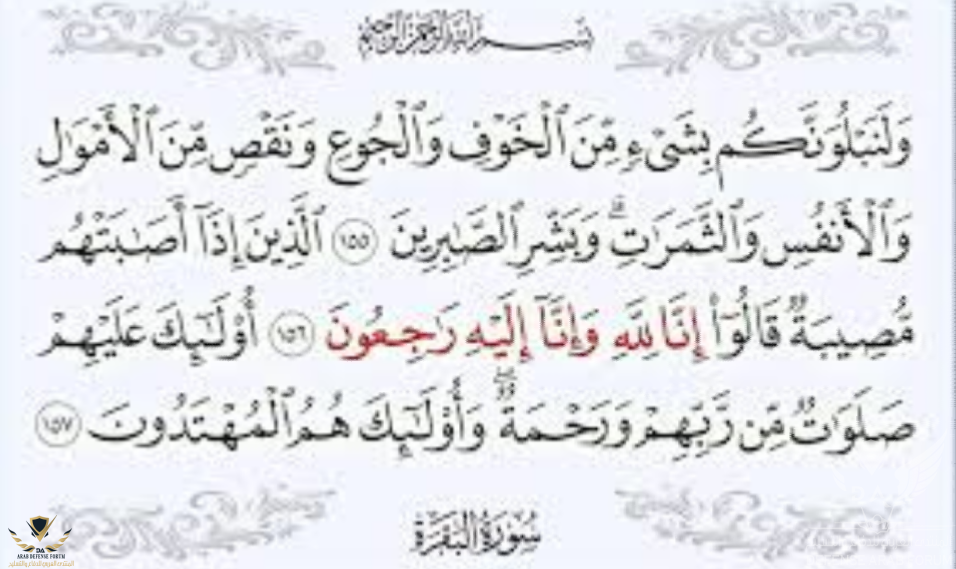 بسم الله الرحمن الرحيم
وَلَنَبْلُوَنَّكُم بِشَىْءٍ مِّنَ ٱلْخَوْفِ وَٱلْجُوعِ وَنَقْصٍ مِّنَ ٱلْأَمْوَٰلِ
وَٱلْأَنفُسِ وَٱلثَّمَرَٰتِ ۗ وَبَشِّرِ ٱلصَّٰبِرِينَ ١٥٥ ٱلَّذِينَ إِذَآ أَصَٰبَتْهُم
مُّصِيبَةٌ قَالُوٓا۟ إِنَّا لِلَّهِ وَإِنَّآ إِلَيْهِ رَٰجِعُونَ ١٥٦ أُو۟لَٰٓئِكَ عَلَيْهِمْ
صَلَوَٰتٌ مِّن رَّبِّهِمْ وَرَحْمَةٌ ۖ وَأُو۟لَٰٓئِكَ هُمُ ٱلْمُهْتَدُونَ ١٥٧
سُورَةُ البَقَرَة
DA
ARAB DEFENSE FORUM